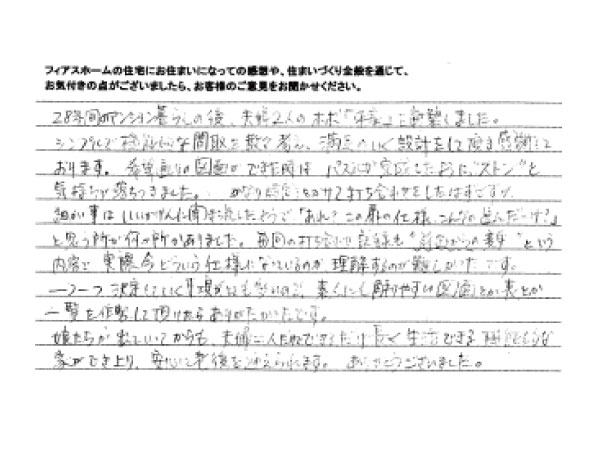 フィアスホームの住宅にお住まいになっての感想や、住まいづくり全般を通じて、
お気付きの点がございましたら、お客様のご意見をお聞かせください。
28年間のマンション暮らしの後、夫婦2人のホボ「平家」に新築しました。
シンプルで機能的な間取を数々考え、満足のいく設計をして頂き感謝して
おります。希望通りの図面ができた時は パズルが完成したように"ストン"と
気持ちが落ちつきました。 かなり時間をかけて打ち合わせをしたはずですが、
細かい事はいいかげんに聞き流したようで "あれ?この扉の仕様、こんなのと んだっけ?"
と思う所が何か所かありました。毎回の打ち合わせ 記録も の事 "という
内容で 実際今どういう仕様になっているのか理解するのが難しかったです。
一つ一つ 決定していく事項がとても多いので、素人にも解りやすい図面とか表とか
一覧を作製して頂けたらありがたかったです。
娘たちが出ていってからも、夫婦二人だけでできるだけ長く生活できる機能的な
家ができ上り、安心して老後を迎えられます。 ありがとうございました。